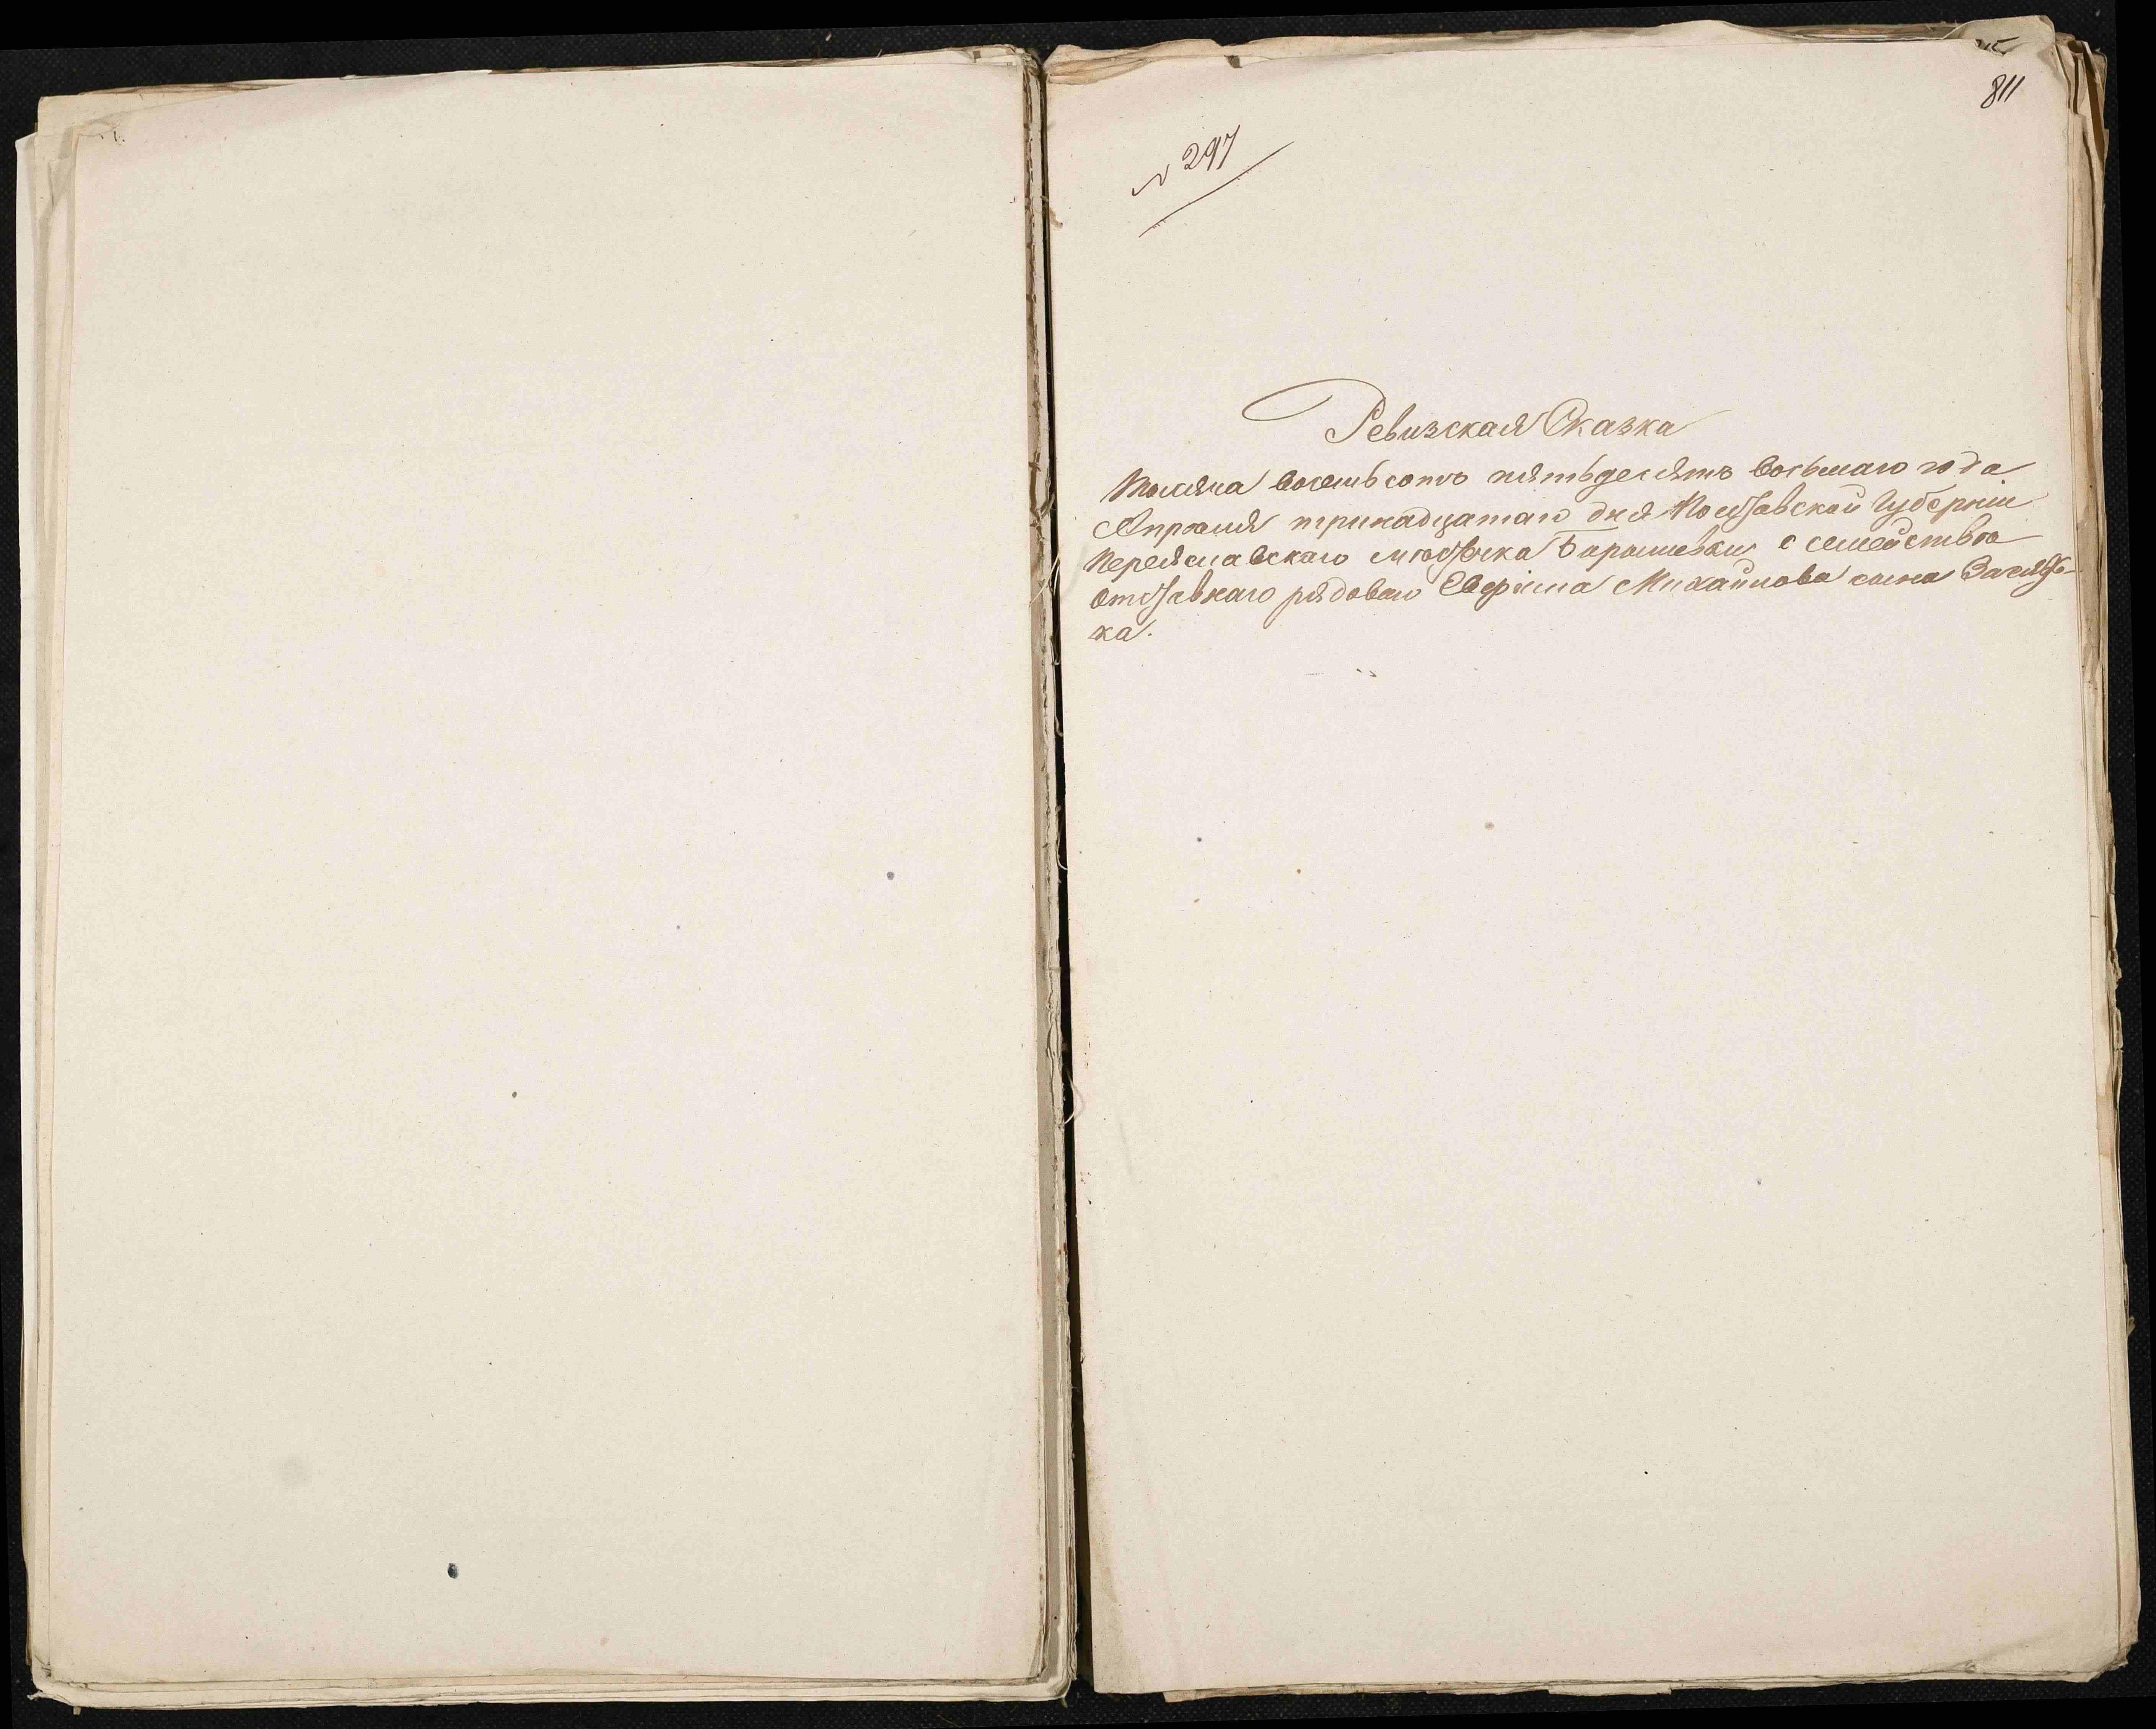 811
№ 297
Ревизская Сказка
Тысяча восемьсотъ пятьдесятъ восьмаго года
Апрѣля тринадцатаго дня Полтавской Губерніи
Переяславскаго мѣстѣчка Барышевки о семействѣ
отставнаго рядоваго Евфима Михайлова сына
ка.